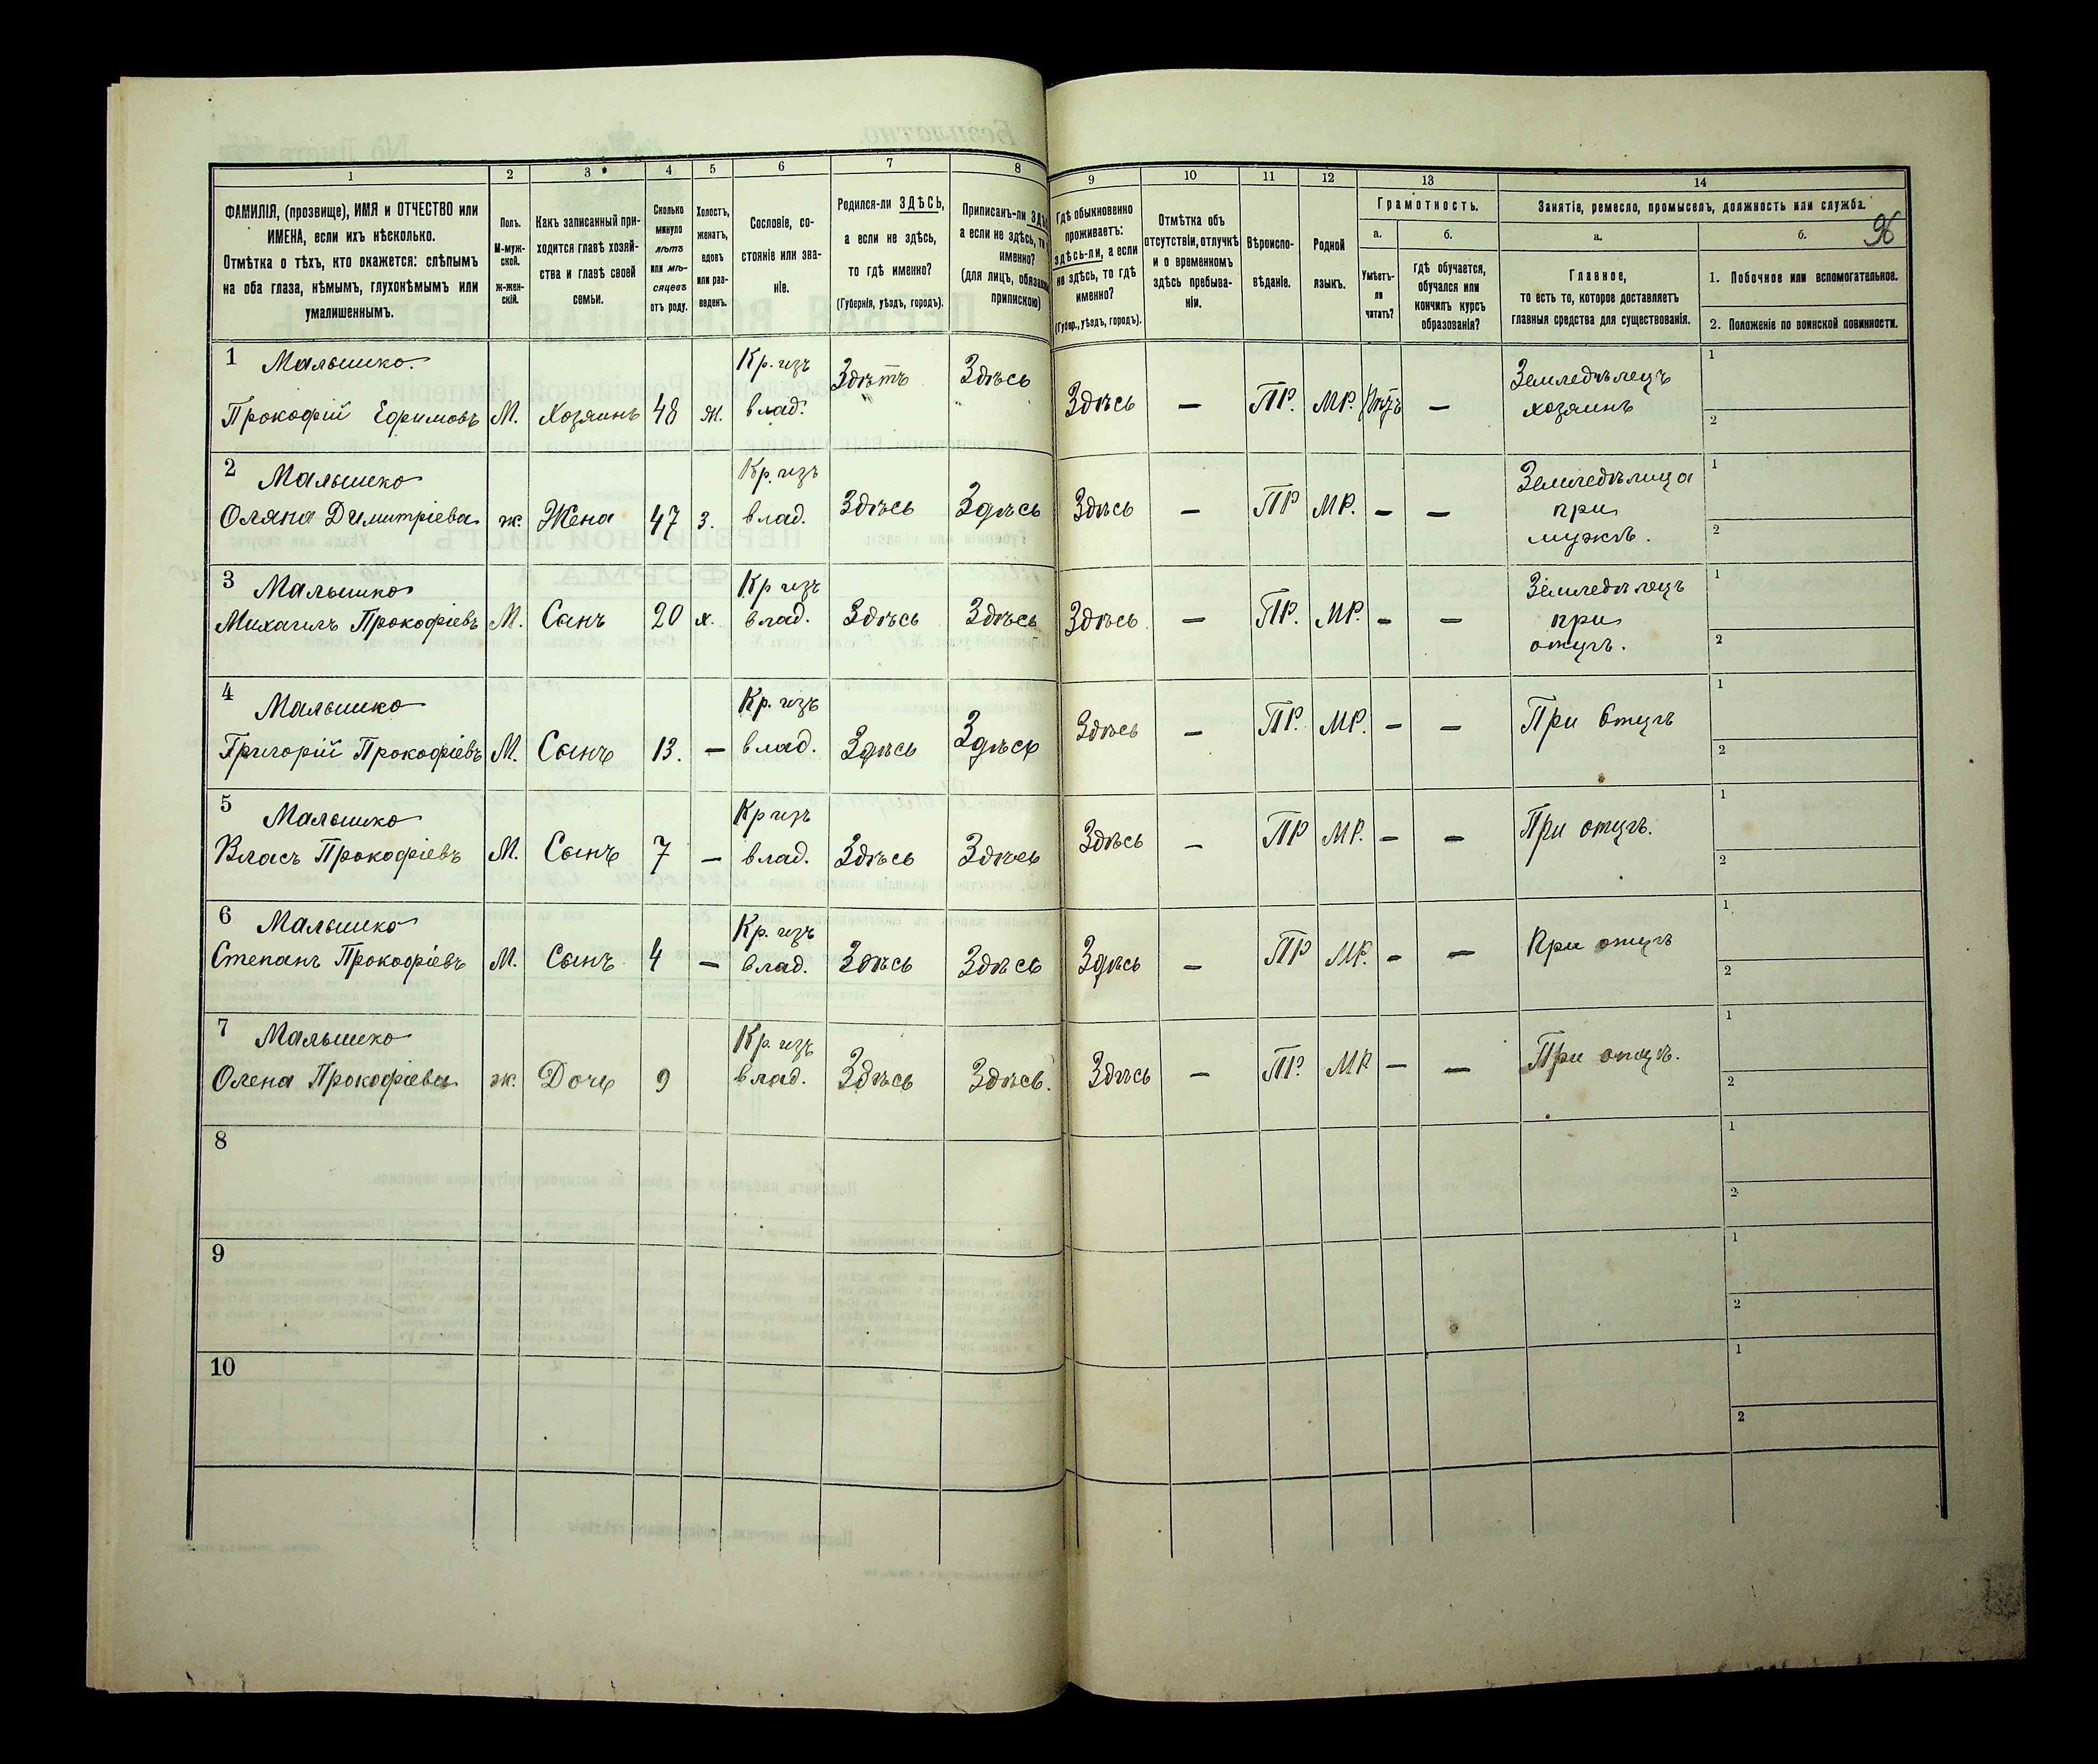 1 2 3 4 5 6 7 8 9 10 11 12 13 14
ФАМИЛІЯ, (прозвище), ИМЯ и ОТЧЕСТВО или
ИМЕНА, если ихъ нѣсколько.
Отмѣтка о тѣхъ, кто окажется: слѣпымъ
на оба глаза, нѣмымъ, глухонѣмымъ или
умалишеннымъ.
Полъ.
М-муж-
ской.
ж-жен-
скій.
Какъ записанный при-
ходится главѣ хозяй-
ства и главѣ своей
семьи.
Сколько
минуло
лѣтъ
или мѣ-
сяцевъ
отъ роду.
Холостъ,
женатъ,
вдовъ
или раз-
веденъ.
Сословіе, со-
стояніе или зва-
ніе.
Родился-ли ЗДѢСЬ,
а если не здѣсь,
то гдѣ именно?
(Губернія, уѣздъ, городъ).
Приписанъ-ли
а если не здѣсь,
именно?
(для лицъ,
припискою)
Гдѣ обыкновенно
проживаетъ:
здѣсь-ли, а если
не здѣсь, то гдѣ
именно?
(Губер., уѣздъ, городъ).
Отмѣтка объ
отсутствіи, отлучкѣ
и о временномъ
здѣсь пребыва-
ніи.
Вѣроиспо-
вѣданіе.
Родной
языкъ.
Грамотность.
а.
Умѣетъ-
ли
читать?
б.
гдѣ обучается,
обучался или
кончилъ курсъ
образованія?
Занятіе, ремесло, промыселъ, должность или служба.
96
а.
Главное,
то есть то, которое доставляетъ
главныя средства для существованія.
б.
1. Побочное или вспомогательное.
2. Положеніе по воинской повинности.
1 Малышко. Кр. изъ Здѣсь Земледѣлецъ 1
Прокофій Ефимовъ М. Хозяинъ 48 ж. влад. " Здѣсь — ПР. МР. — хозяинъ 2
2 Малышко Кр. изъ Земледѣлица 1
Оляна Димитріева ж. Жена 47 з. влад. Здѣсь Здѣсь Здѣсь — ПР МР. — — при 2
мужѣ.
3 Малышко Кр изъ Земледѣлецъ 1
Михаилъ Прокофіевъ М. Сынъ 20 х. влад. Здѣсь Здѣсь Здѣсь — ПР. МР. — — при 2
отцѣ.
4 Малышко Кр. изъ 1
Григорій Прокофіевъ М. Сынъ 13. — влад. Здѣсь Здѣсь Здѣсь — ПР. МР. — — При Отцѣ 2
5 Малышко Кр изъ 1
Власъ Прокофіевъ М. Сынъ 7 — влад. Здѣсь Здѣсь Здѣсь — ПР МР. — — При отцѣ. 2
6 Малышко Кр. изъ 1
Степанъ Прокофіевъ М. Сынъ 4 — влад. Здѣсь Здѣсь Здѣсь — ПР МР. — — При отцѣ 2
7 Малышко Кр. изъ 1
Олена Прокофіева ж. Дочь 9 влад. Здѣсь Здѣсь. Здѣсь — ПР. МР — — При отцѣ. 2
8 1
2
9 1
2
10 1
2